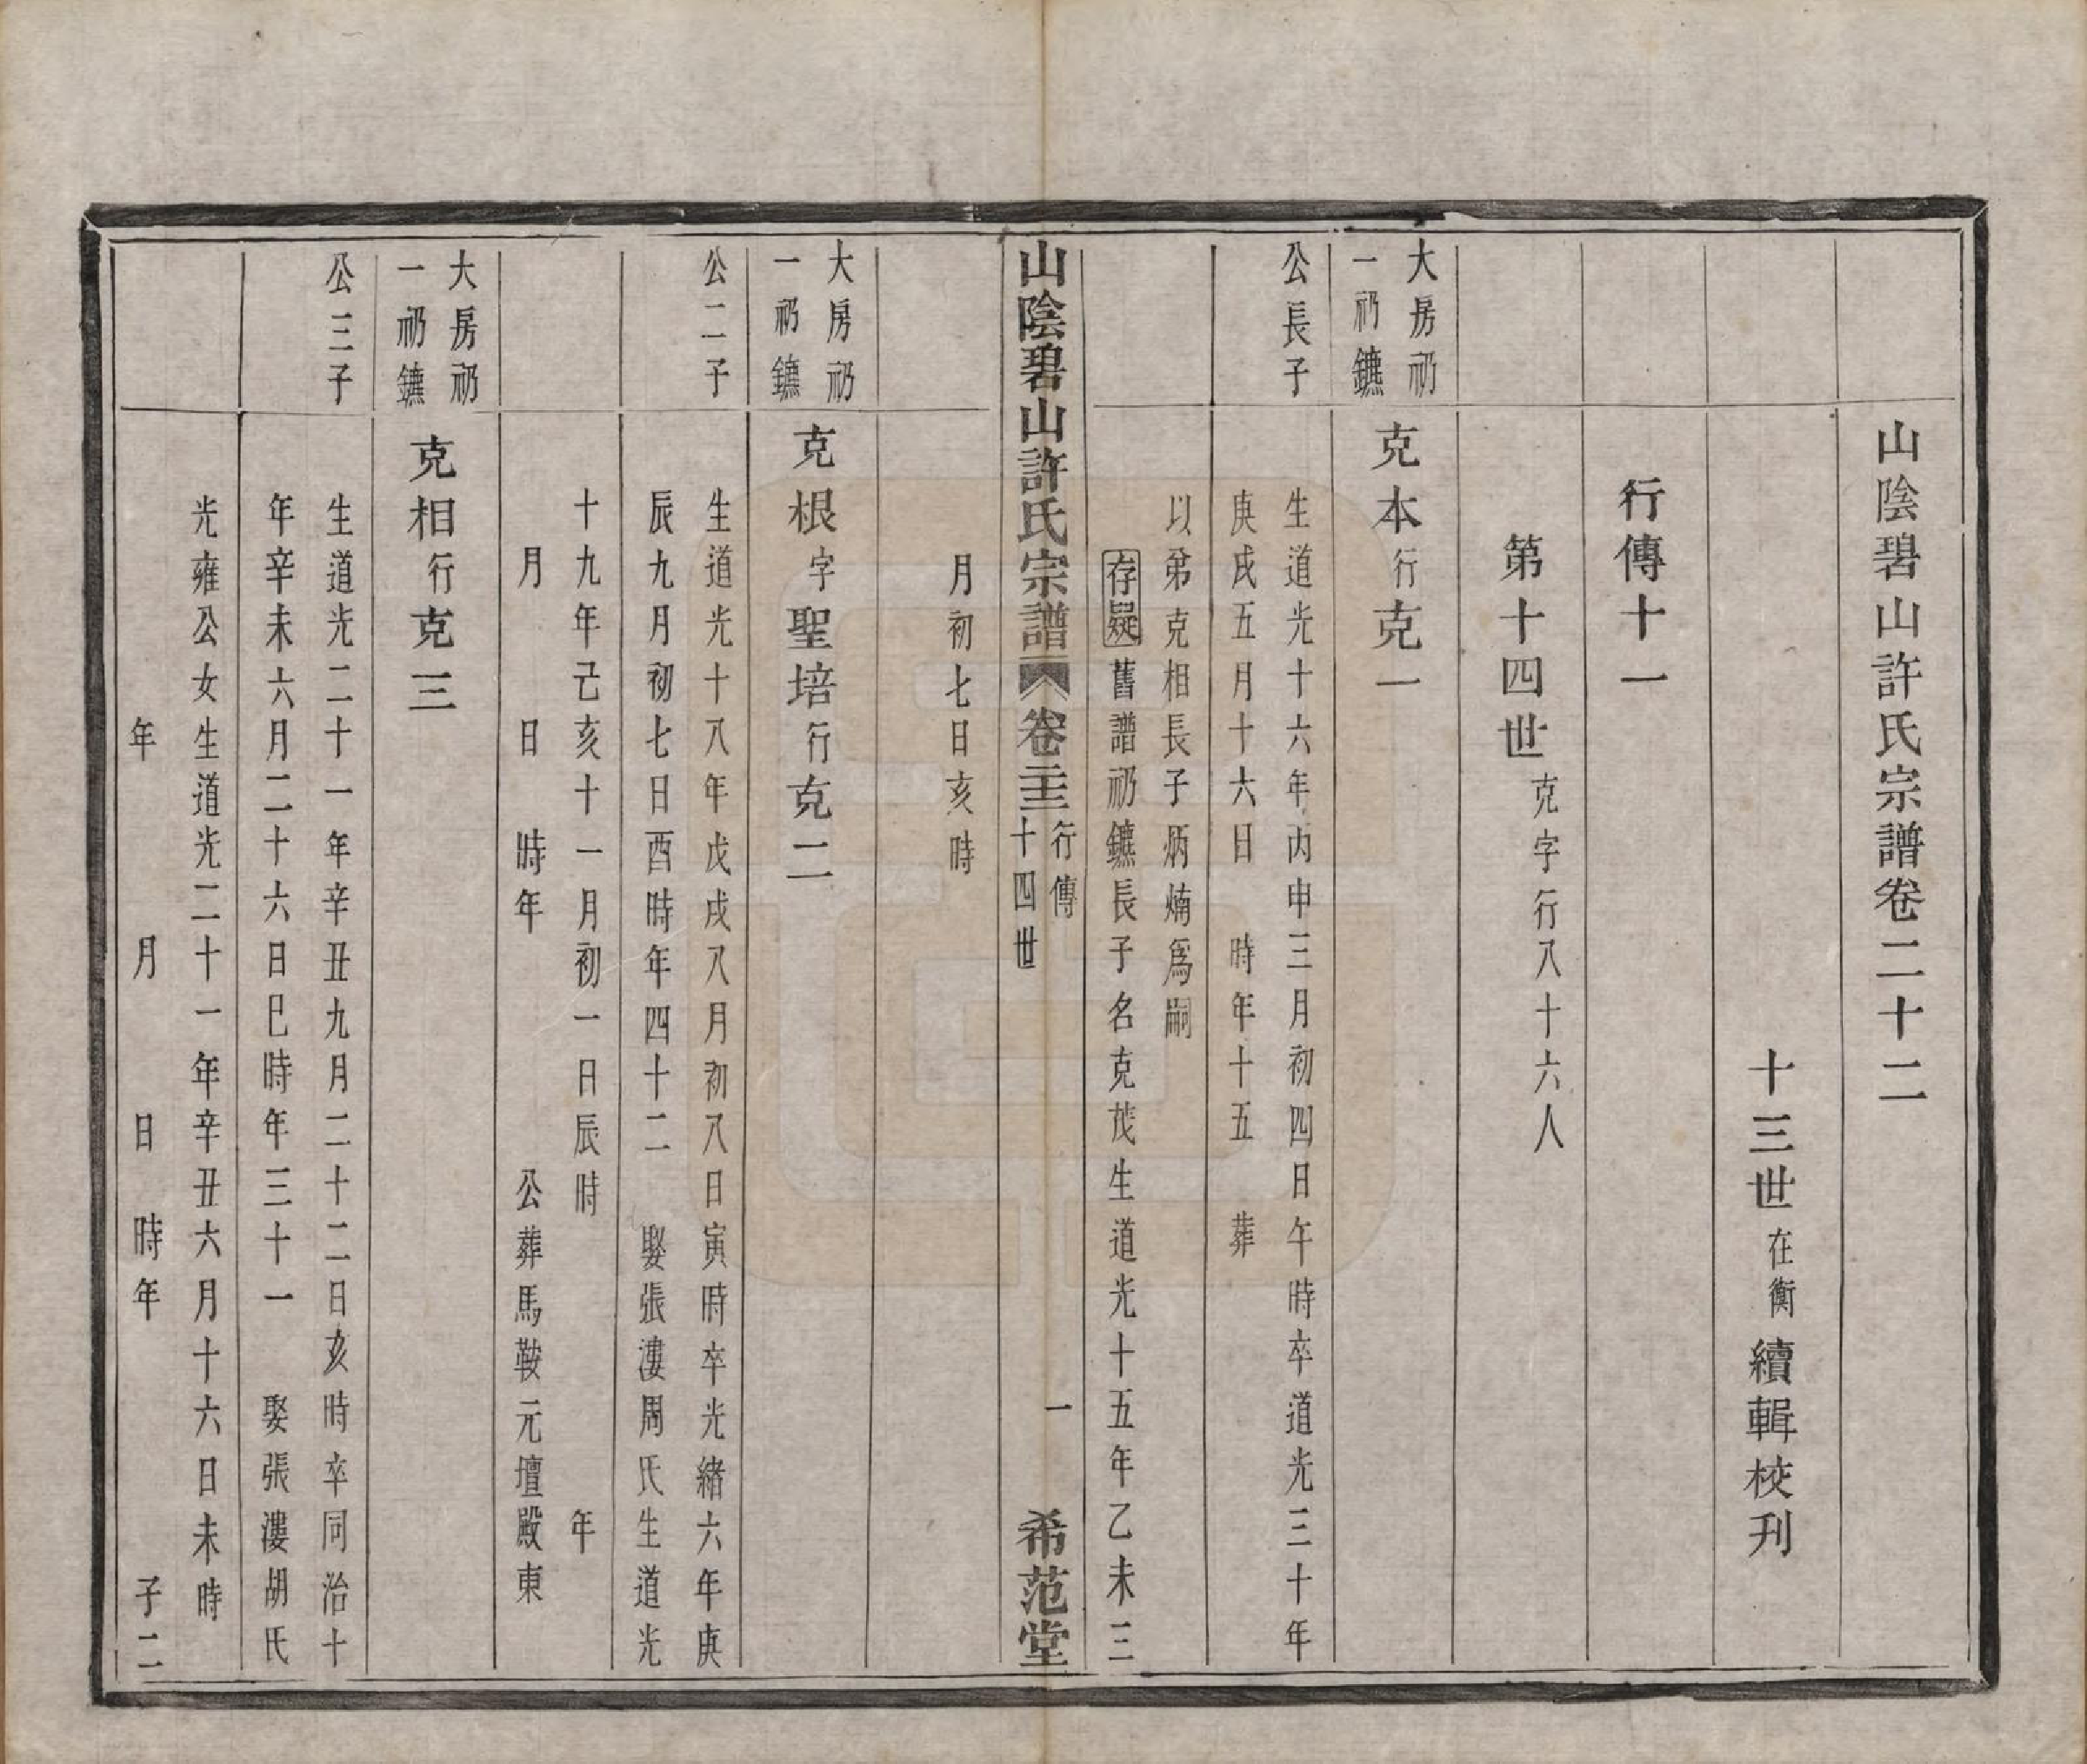 山陰碧山許氏宗譜卷二十二
十三世在衡續輯校刊
行傳十一
第十四世克字行八十六人
大房礽
一礽鑣
克本行克一
公長子
生道光十六年丙申三月初四日午時卒道光三十年
庚戌五月十六日 時年十五 葬
以弟克相長子炳煵爲嗣
存疑舊譜礽鑣長子名克茂生道光十五年乙未三
山陰碧山許氏宗譜 卷二十二 行傳 十四世 一 希范堂
月初七日亥時
大房礽
一礽鑣
克根字聖培行克二
公二子
生道光十八年戊戌八月初八日寅時卒光緒六年庚
辰九月初七日酉時年四十二 娶張漊周氏生道光
十九年己亥十一月初一日辰時 年
月 日 時年 公葬馬鞍元壇殿東
大房礽
一礽鑣
克相行克三
公三子
生道光二十一年辛丑九月二十二日亥時卒同治十
年辛未六月二十六日巳時年三十一 娶張漊胡氏
光雍公女生道光二十一年辛丑六月十六日未時
年 月 日 時年 子二